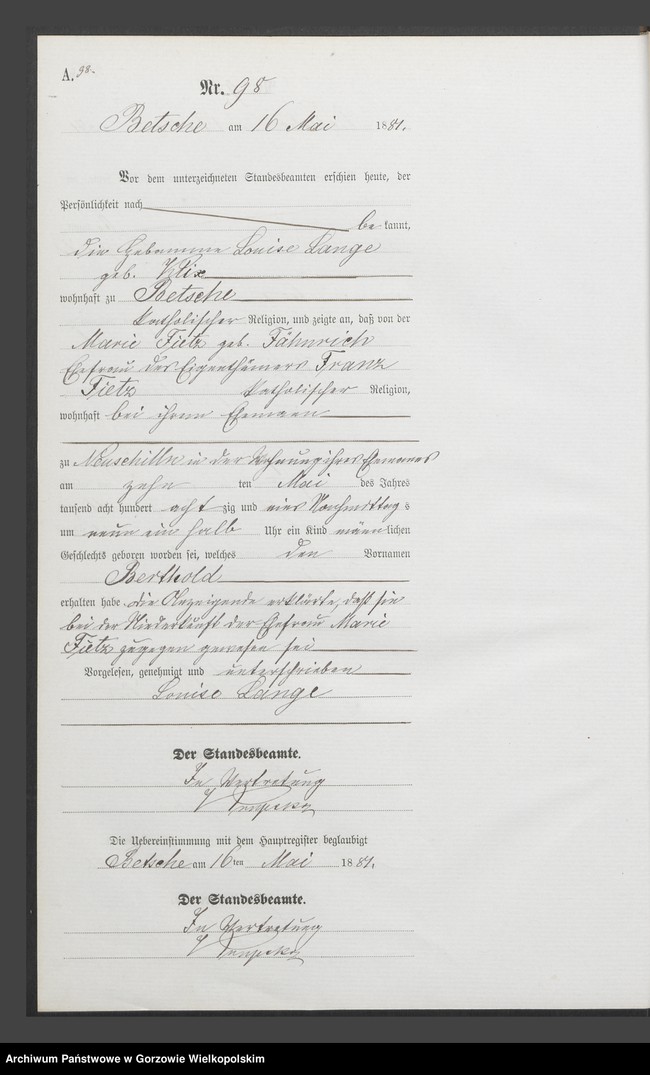 A. 98.
Nr. 98
Betsche am 16 Mai 1881.
Vor dem unterzeichneten Standesbeamten erschien heute, der
Persönlichkeit nach
be kannt,
die Hebamme Louise Lange
geb.
wohnhaft zu Betsche
katholischer Religion, und zeigte an, daß von der
Marie Fietz geb. Fähnrich
Ehefrau des Eigenthümers Franz
Fietz katholischer Religion,
wohnhaft bei ihrem Ehemann
zu in der Wohnung ihres Ehemannes
am zehn ten Mai des Jahres
tausend acht hundert acht zig und eins Nachmittag s
um neun ein halb Uhr ein Kind männ lichen
Geschlechts geboren worden sei, welches den Vornamen
Berthold
erhalten habe die Anzeigende erklärte, daß sie
bei der Niederkunft der Ehefrau Marie
Fietz zugegen gewesen sei
Vorgelesen, genehmigt und unterschrieben
Louise Lange
Der Standesbeamte.
In Vertretung
Die Uebereinstimmung mit dem Hauptregister beglaubigt
Betsche am 16 ten Mai 1881.
Der Standesbeamte.
In Vertretung
Archiwum Państwowe w Gorzowie Wielkopolskim